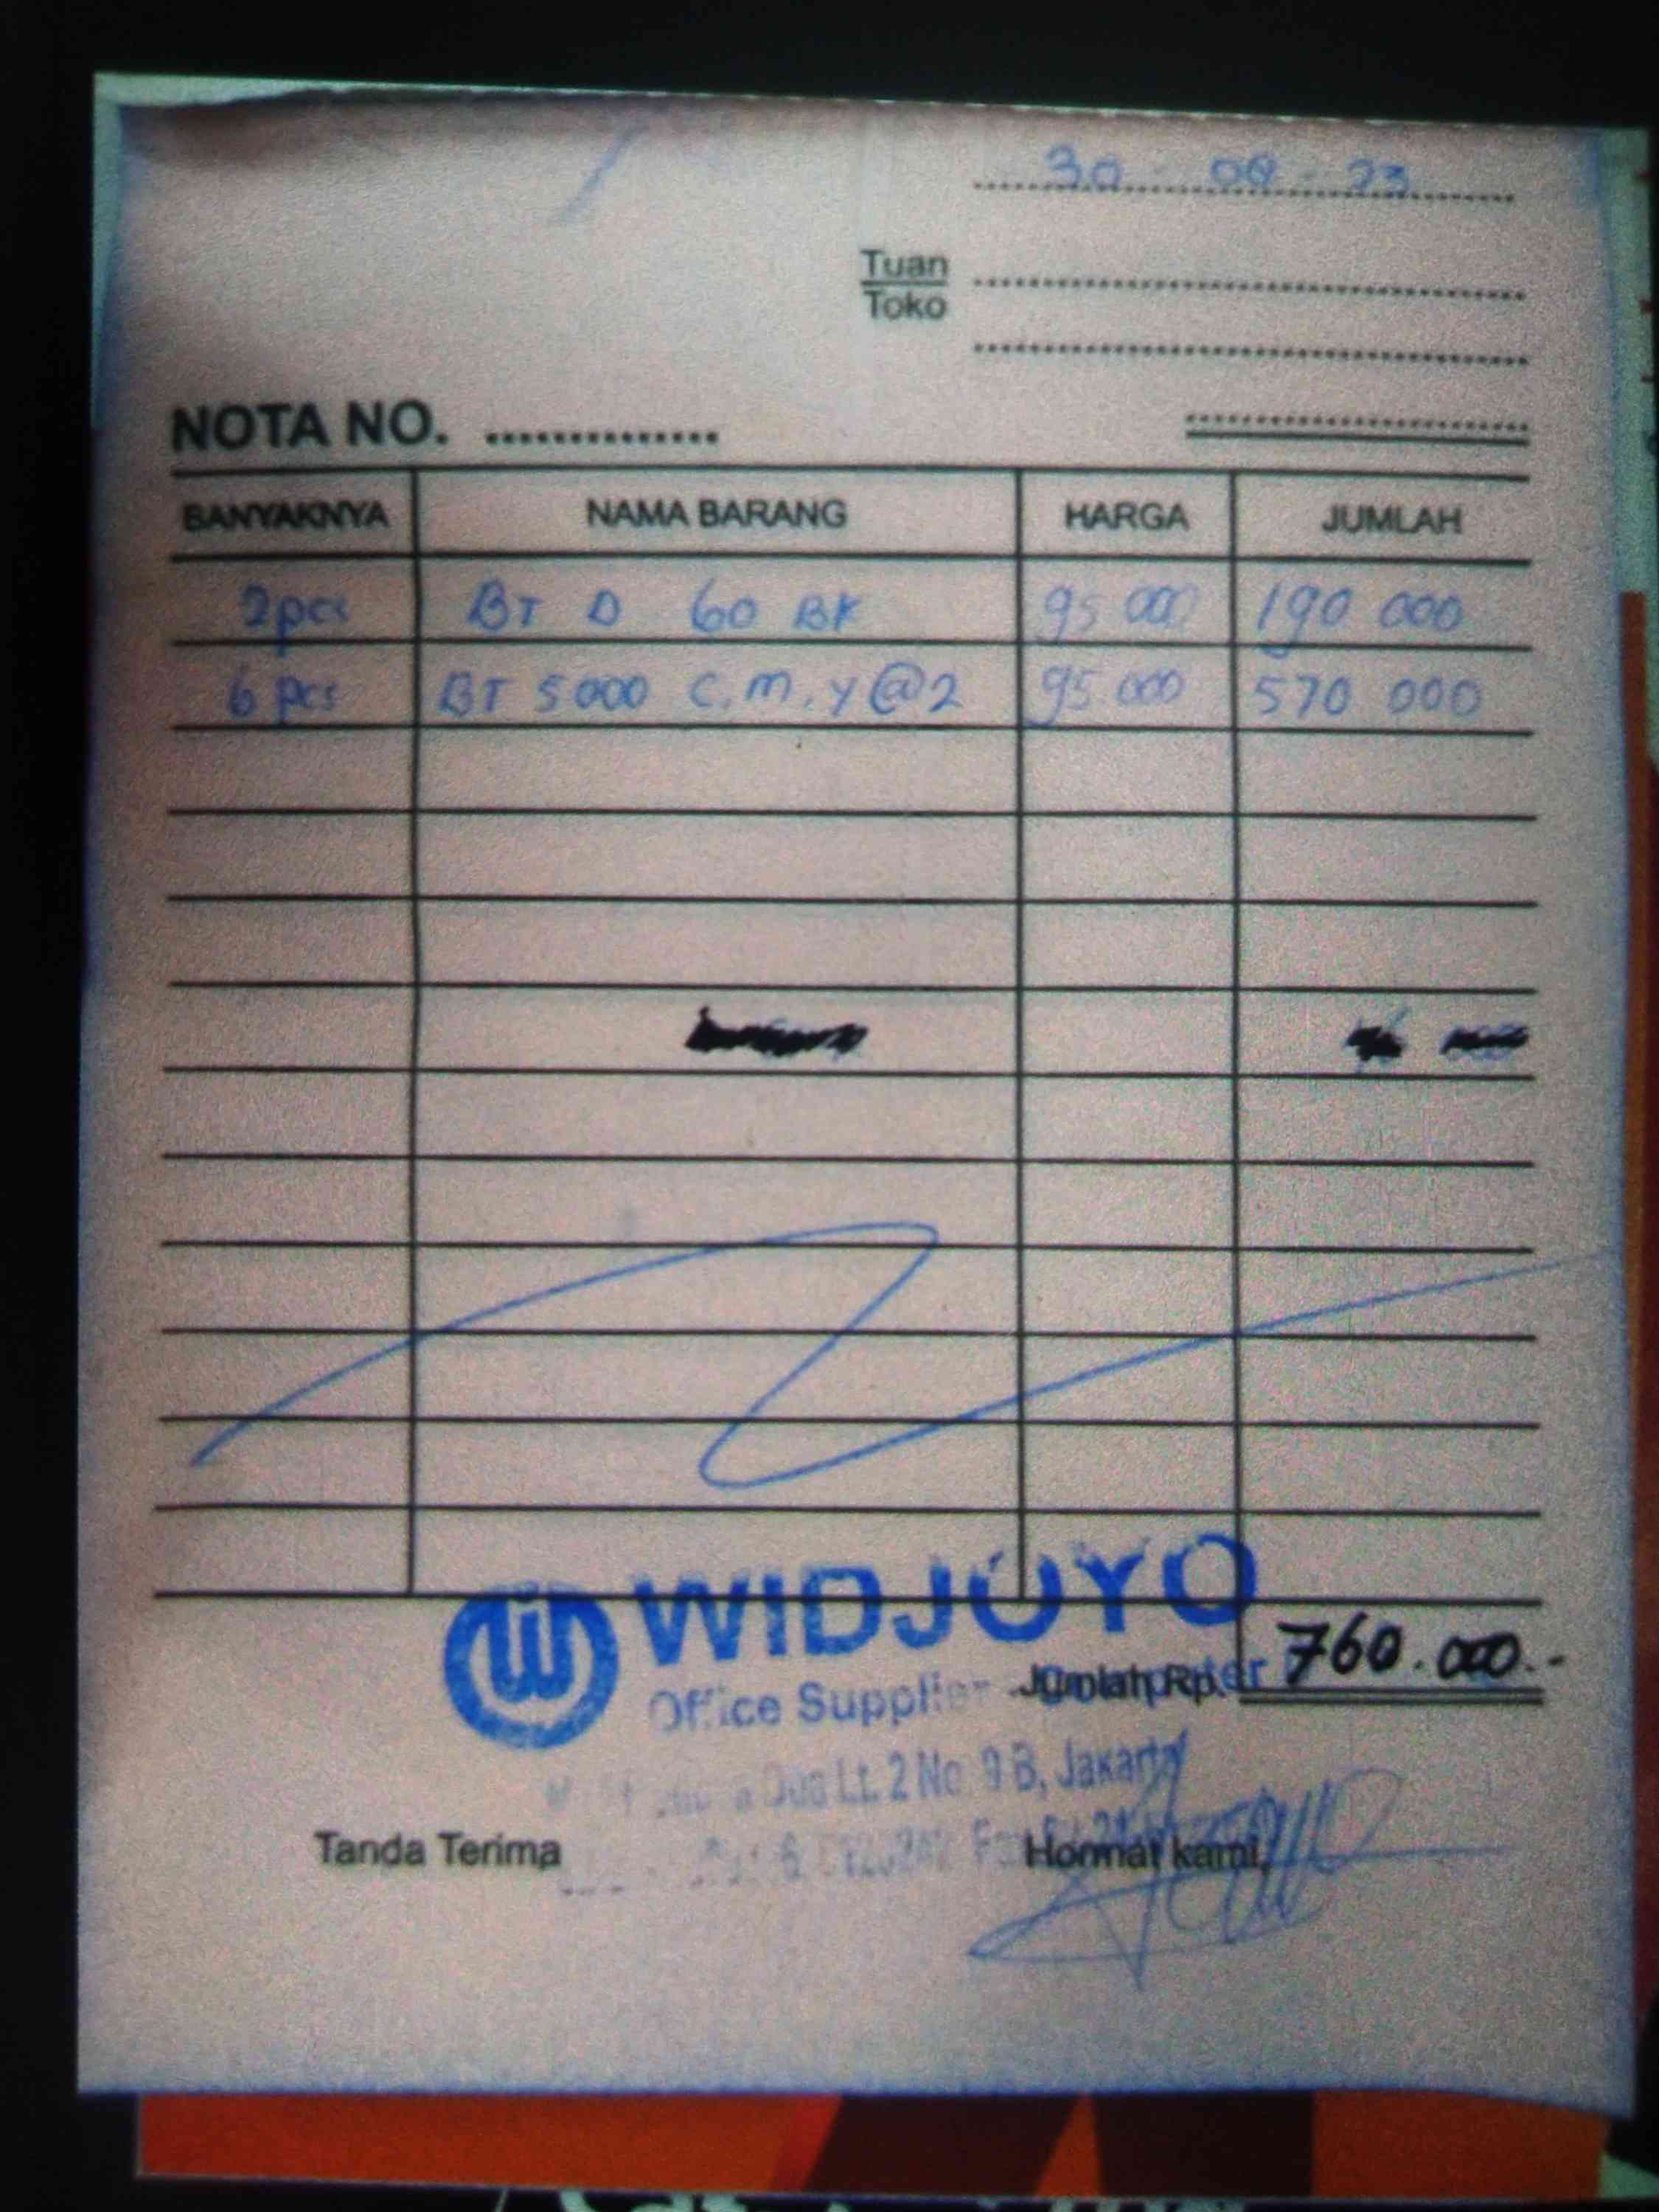 30 - 08 - 23
Tuan
Toko
NOTA NO.
BANYAKNYA NAMA BARANG HARGA JUMLAH
2 pcs BT D 60 BK 95 000 190 000
6 pcs BT 5000 C.M.Y @2 95 000 570 000
WIDJOYO
Jumlah Rp. 760.000.-
Office Supplies - Computer
Dua Lt. 2 No. 9 B, Jakarta
Tanda Terima Hormat kami,